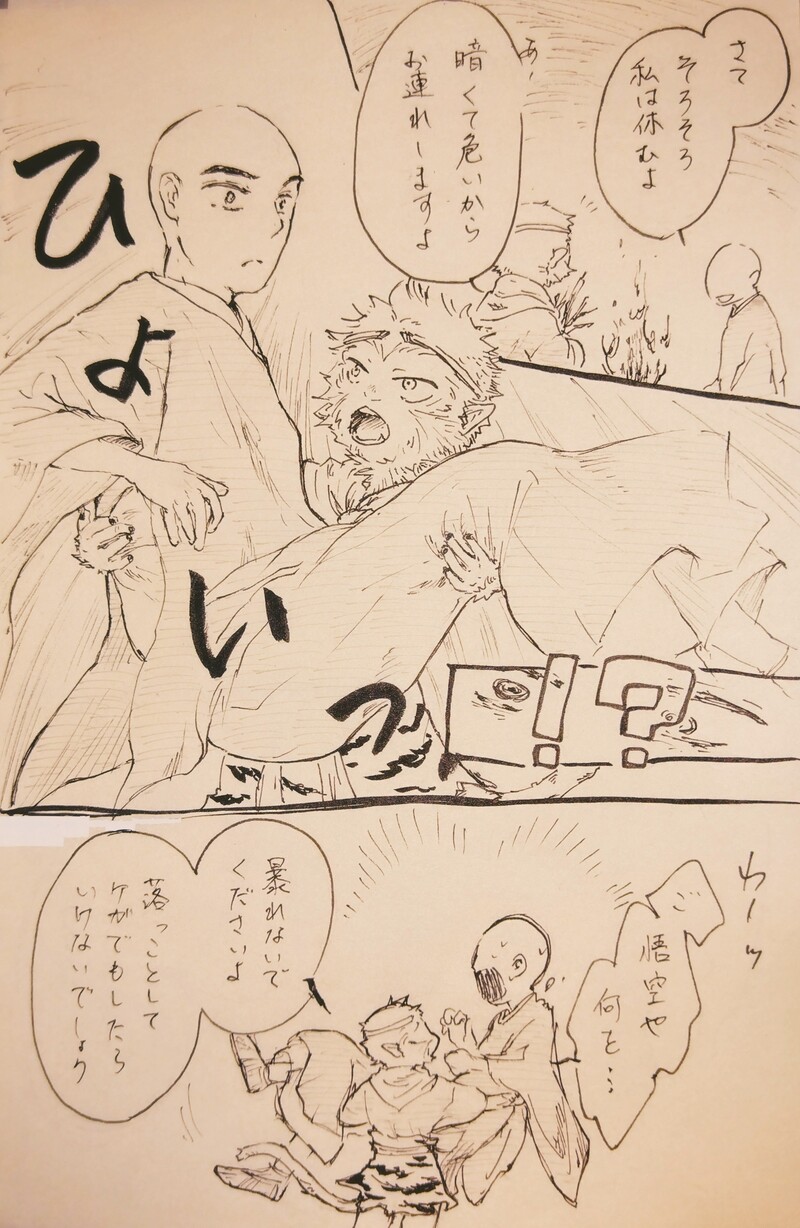 さて
そろそろ
私は休むよ
あ、
暗くて危いから
お連れしますよ
ひ
ょ
い
っ
!?
わーッ
ご
悟空や
何を…
暴れないで
くださいよ
落っことして
ケガでもしたら
いけないでしょう